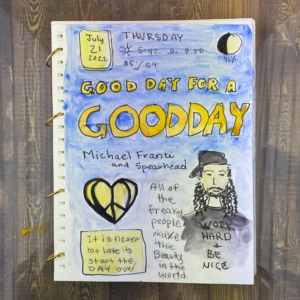 July
21
2022
THURSDAY
5:42 8:50
85/59
GOOD DAY FOR A
GOODDAY
Michael Franti
and Spearhead
All of
the
freaky
people
make
the
Beauty
in the
world
WORK
HARD
+
BE
NICE
It is never
too late to
start the
DAY over